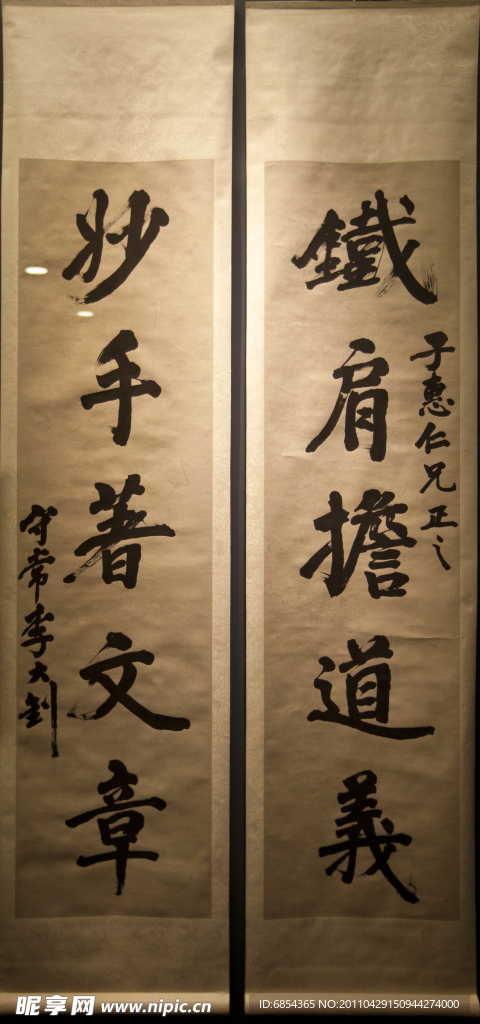 鐵肩擔道義
于惠仁兄正之
妙手著文章
守常李大釗
昵享网 www.nipic.cn
ID:6854365 NO:20110429150944274000